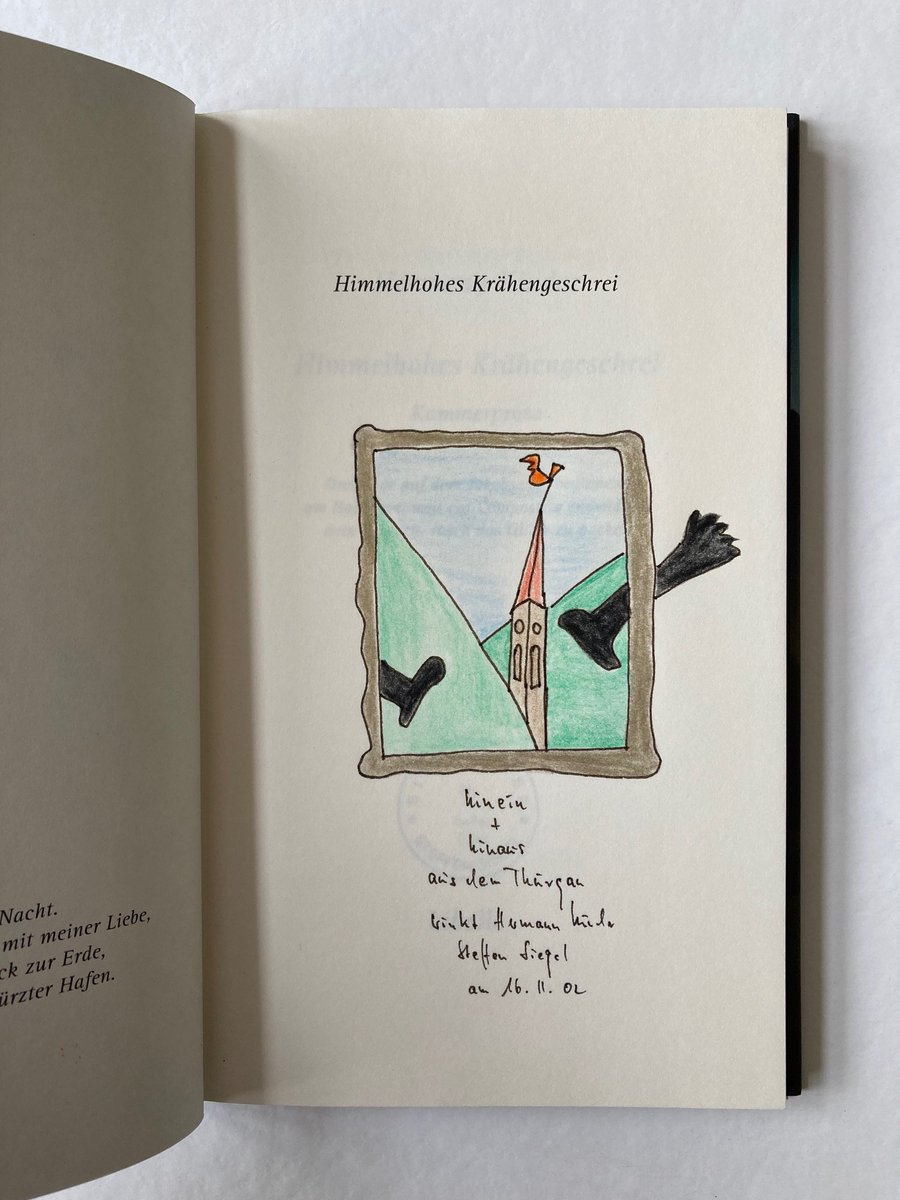 Himmelhohes Krähengeschrei
Himmelhohes Krähengeschrei
Kammerprosa
hinein
+
hinaus
aus dem Thurgau
winkt Hermann
Steffen Siegel
am 16. II. 02
Nacht.
mit meiner Liebe,
ck zur Erde,
ürzter Hafen.